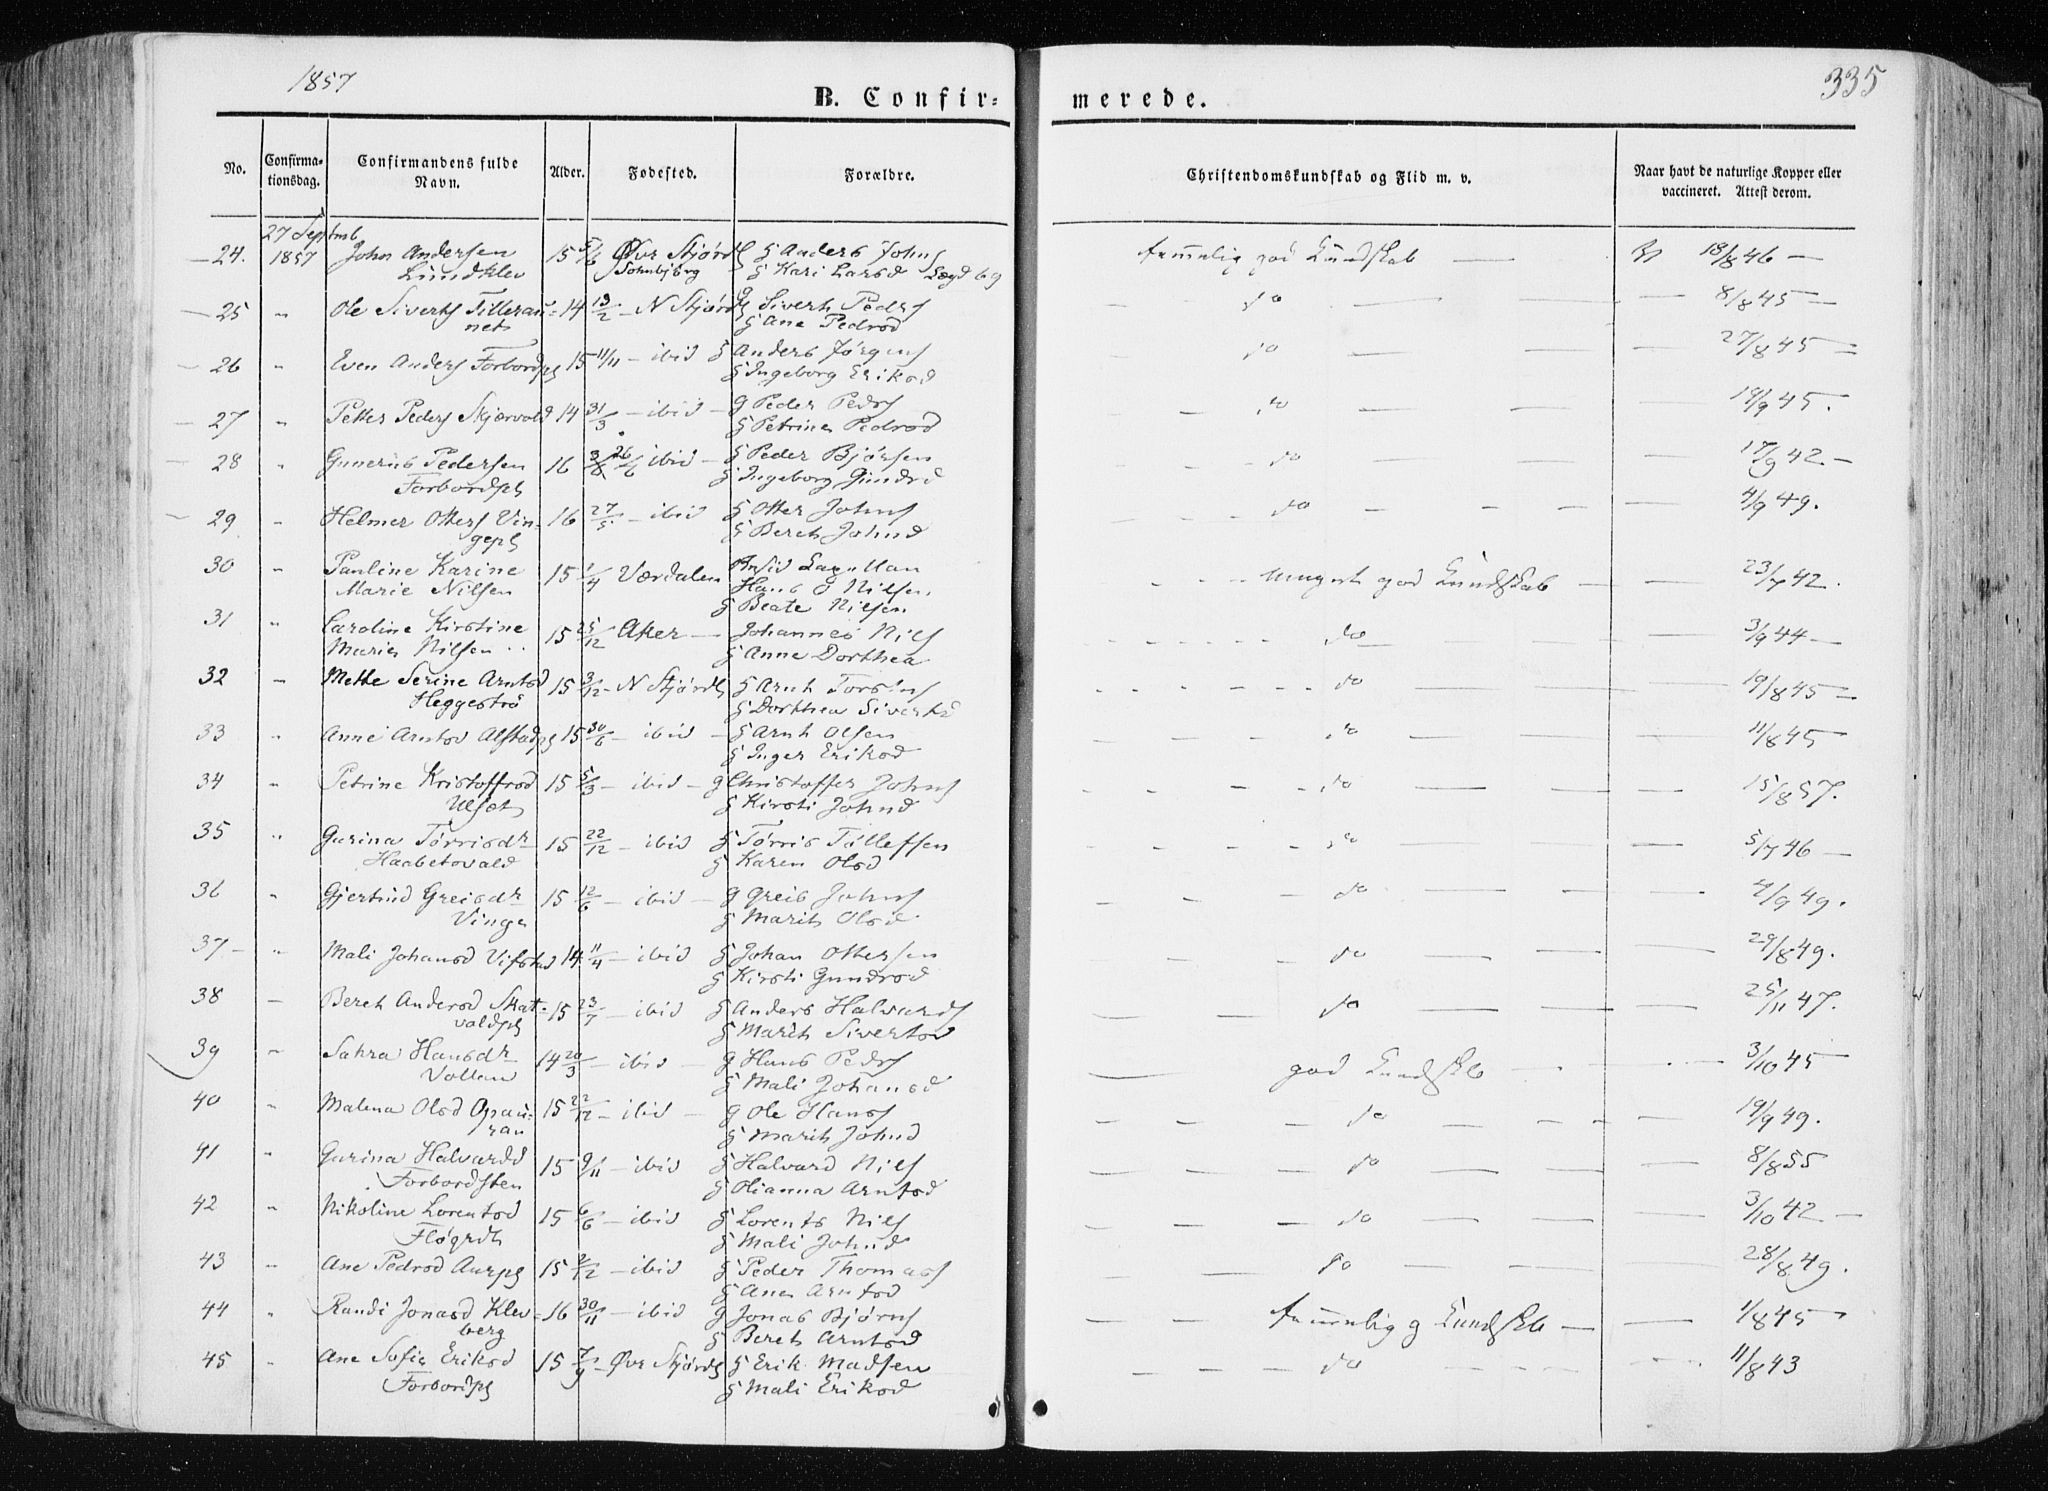 1857
335
B. Confir-merede.
No. Confirmationsdag. Confirmandens fulde Navn. Alder. Fødested. Forældre. Christendomskundskab og Flid m. v. Naar havt de naturlige Kopper eller vaccineret. Attest derom.
27 Septmb
24. 1857 John Andersen 15 5/6 Øvr Stjørd G Anders Johns temmelig god Kundskab — 18/8 46 —
Lundklev G Kari Larsd Lægd 69
25 " Ole Siverts Tillerau= 14 13/2 — N Stjørd G Sivert Peders do 8/8 45 —
net G Ane Pedrsd
26 " Even Anders Forbordpl 15 11/11 — ibid G Anders Jørgens do 27/8 45 —
G Ingeborg Eriksd
27 " Petter Peders Skjervold 14 31/3 — ibid — g Peder Peders do 19/9 45.
G Petrine Pedrsd
28 " Gunerius Pedersen 16 3/8 26/6 ibid — G Peder Bjørsen do 17/9 42 —
Forbordspl G Ingeborg Gundrd
29 " Helmer Otters Vin- 16 27/5 — ibid G Otter Johns do 4/9 49.
gepl G Bereth Johnd
30 " Pauline Karine 15 1/4 Værdalen
Marie Nilsen Hans O Nilsen, meget god Kundskab — 23/7 42.
G Beate Nilsen
31 " Caroline Kirstine 15 25/12 Aker — Johannes Nils do 3/9 44 —
Marie Nilsen G Anne Dorthea
32 " Mette Serine Arntsd 15 3/12 — N Stjørd G Arnt Torstens do 19/8 45 —
Heggestrø G Dorthea Sivertsd
33 " Anne Arntsd Alstadpl 15 30/6 — ibid — G Arnt Olsen do 11/8 45
G Inger Eriksd
34 " Petrine Kristoffrsd 15 5/3 — ibid — g Christoffer Johns do 15/8 57.
Ulset G Kirsti Johnd
35 " Gurina Tørrisdr 15 22/12 — ibid G Tørris Tølleffsen do 5/7 46 —
Haabetsvald G Karen Olsd
36 " Gjertrud Greisdr 15 12/6 — ibid — g Greis Johns do 4/9 49.
Vinge G Marit Olsd
37 — " Mali Johansd Vifstad 14 11/4 — ibid G Johan Ottersen do 29/8 49.
G Kirsti Gundrsd
38 — Bereth Andersd Skat- 15 23/7 — ibid G Anders Halvards do 25/11 47.
valdpl G Marit Sivertsd
39 " Sahra Hansdr 14 20/3 — ibid — g Hans Peders god Kundskb 3/10 45
Vollan G Mali Johansd
40 " Malena Olsd Opau= 15 22/12 — ibid — g Ole Hans do 19/9 49.
ran G Marit Johnd
41 " Gurina Halvardd 15 9/11 — ibid G Halvard Nils do 8/8 55
Forbordsten G Olianna Arntsd
42 " Nikoline Lorentsd 15 6/6 — ibid G Lorents Nils do 3/10 42 —
Fløgrdt G Mali Johnd
43 " Ane Pedrsd Aurpl 15 2/12 — ibid G Peder Thomass do 28/8 49.
G Ane Arntsd
44 " Randi Jonasd Klev= 16 30/11 — ibid g Jonas Bjørns temmelig g Kundskb — 1/8 45
berg G Bereth Arntsd
45 " Ane Sofie Eriksd 15 7/9 — Øvr Stjørd G Erik Madsen do 11/8 43
Forbordpl G Mali Eriksd